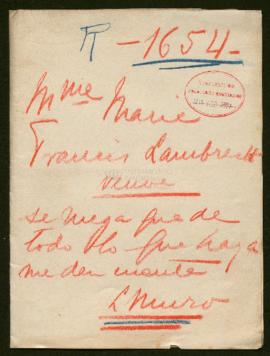 R -1654-
Mme Marie
Francis Lambrecht
veuve
se niega que de
todo lo que haga
me den cuenta
L Muro